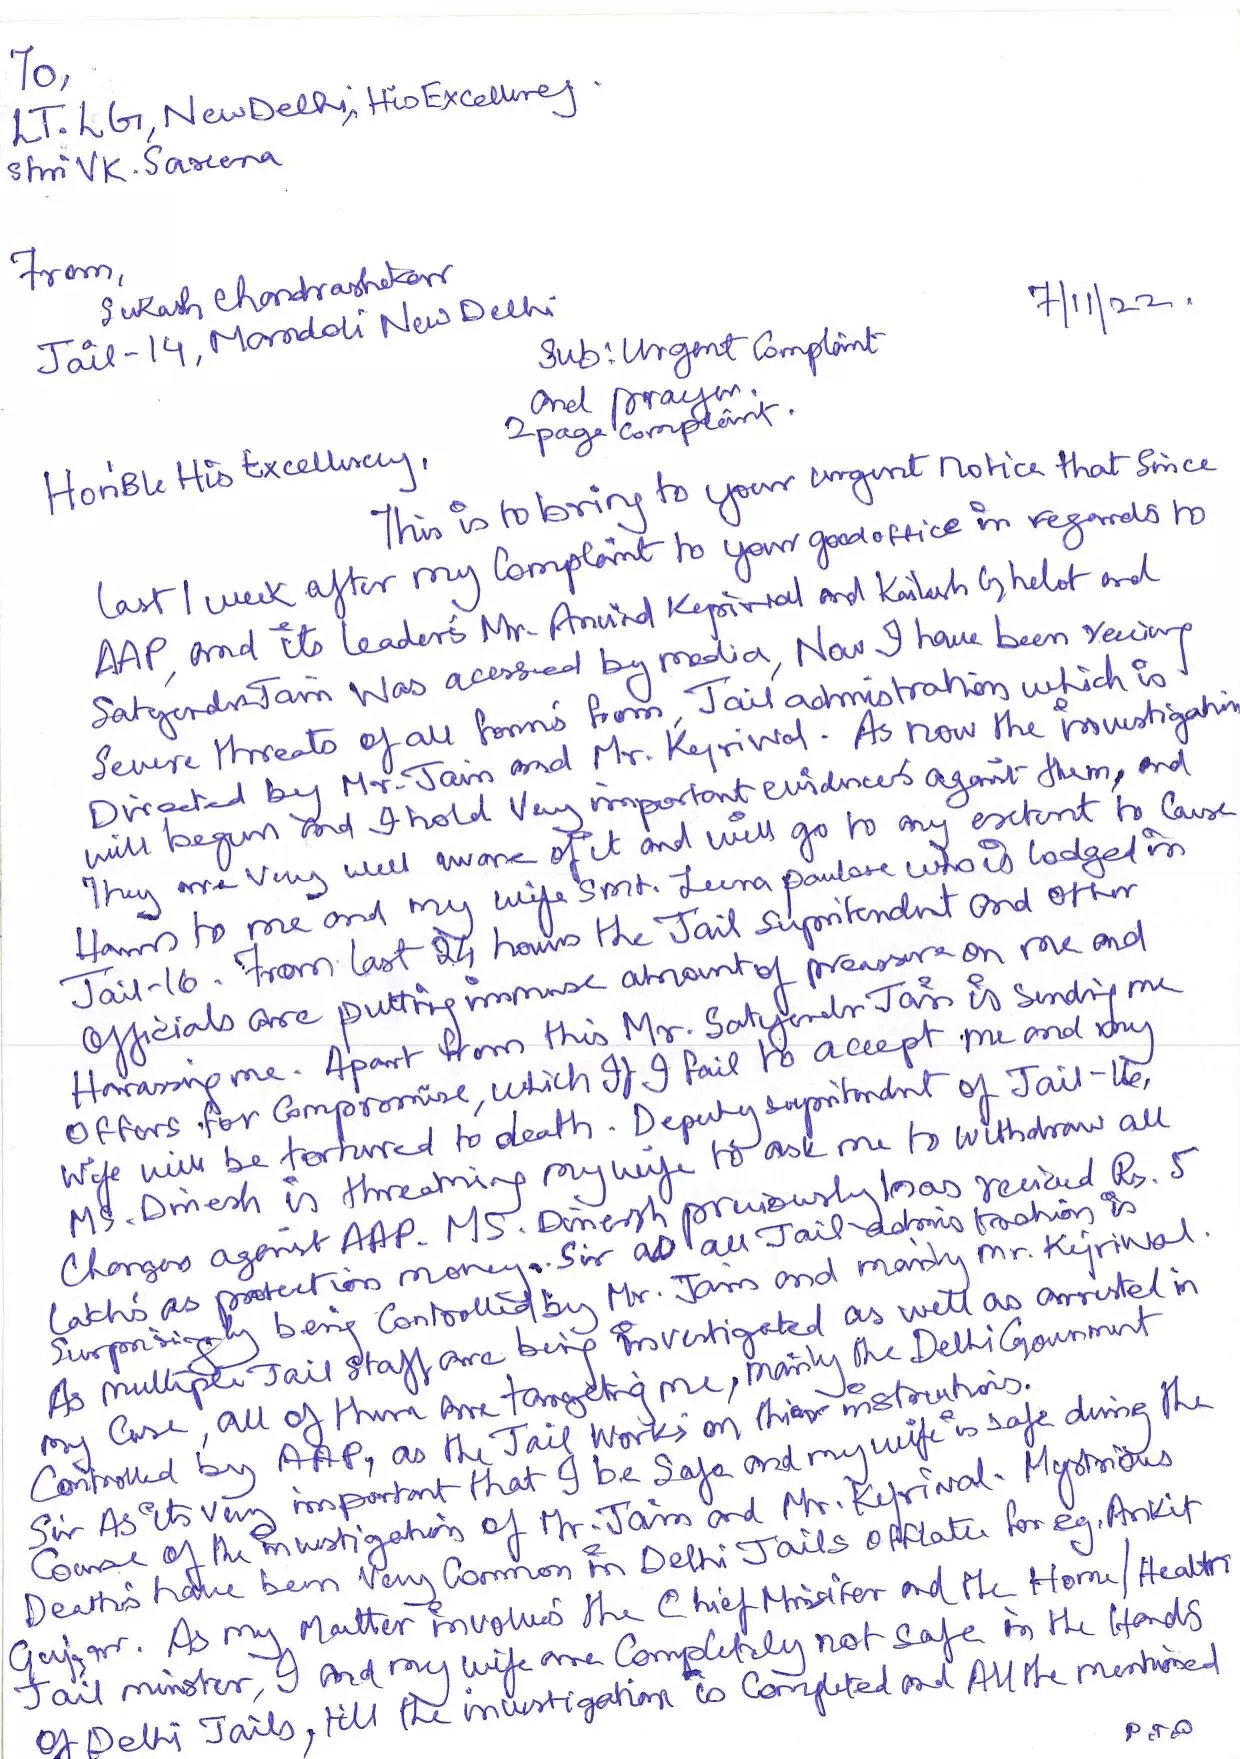 To,
LT. LG, New Delhi, His Excellency.
Shri VK. Saxena
From,
Sukash Chandrashekar
Jail-14, Mandoli New Delhi
7/11/22.
Sub: Urgent Complaint
and prayer.
2 page complaint.
Hon'Ble His Excellency,
This is to bring to your urgent notice that since
last 1 week after my Complaint to your good office in regards to
AAP, and its leader's Mr. Arvind Kejriwal and Kailash Ghelot and
Satyendr Jain was acessed by media, Now I have been reciving
Severe threats of all form's from, Jail admistration which is
Directed by Mr. Jain and Mr. Kejriwal. As now the investigation
will begun and I hold very important evidences against them, and
They are very well aware of it and will go to any extent to Cause
Harm to me and my wife Smt. Leena paulose who is lodged in
Jail-16. From last 24 hours the Jail Supritendnt and other
officials are putting immense amount of preassure on me and
Harassing me. Apart from this Mr. Satyendr Jain is sending me
offers for Compromise, which If I fail to accept me and my
wife will be tortured to death. Deputy supritendnt of Jail-16,
MS. Dinesh is threatning my wife to ask me to withdraw all
Charges against AAP. MS. Dinesh previously has recived Rs. 5
Lakhs as protection money. Sir as all Jail admistration is
Surprisingly being Controlled by Mr. Jain and mainly Mr. Kejriwal.
As multiple Jail Staff are being investigated as well as arrested in
my Case, all of them are targeting me, mainly the Delhi Government
Controlled by AAP, as the Jail Works on their instructions.
Sir As its very important that I be Safe and my wife is safe during the
Course of the investigation of Mr. Jain and Mr. Kejriwal. Mystrious
Death's have been very Common in Delhi Jails off late for eg. Ankit
Gujjar. As my Matter involves the Chief Minister and the Home/Health
Jail minister, I and my wife are Completely not safe in the Hands
of Delhi Jails, till the investigation is Completed and All the mentioned
P.T.O